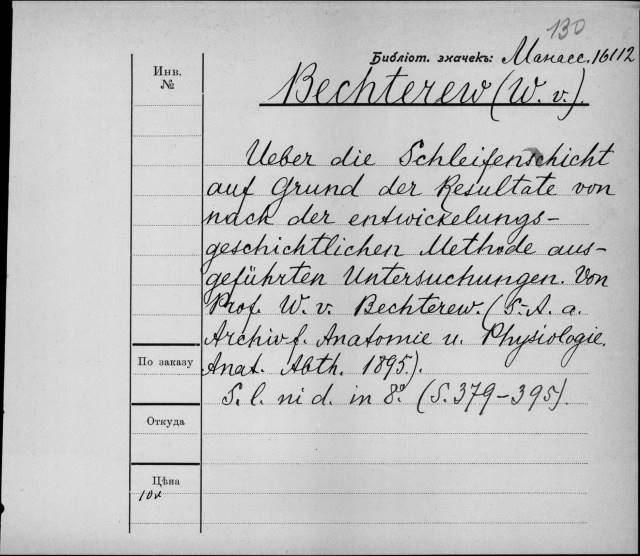 130
Библіот. значекъ: Манасс. 16112
Инв.
№
Bechterew (W. v.).
Ueber die Schleifenschicht
auf Grund der Resultate von
nach der entwickelungs-
geschichtlichen Methode aus-
geführten Untersuchungen. Von
Prof. W. v. Bechterew. (S.-A. a.
Archiv f. Anatomie u. Physiologie.
Anat. Abth. 1895).
S. l. ni d. in 8º. (S. 379-395).
По заказу
Откуда
Цѣна